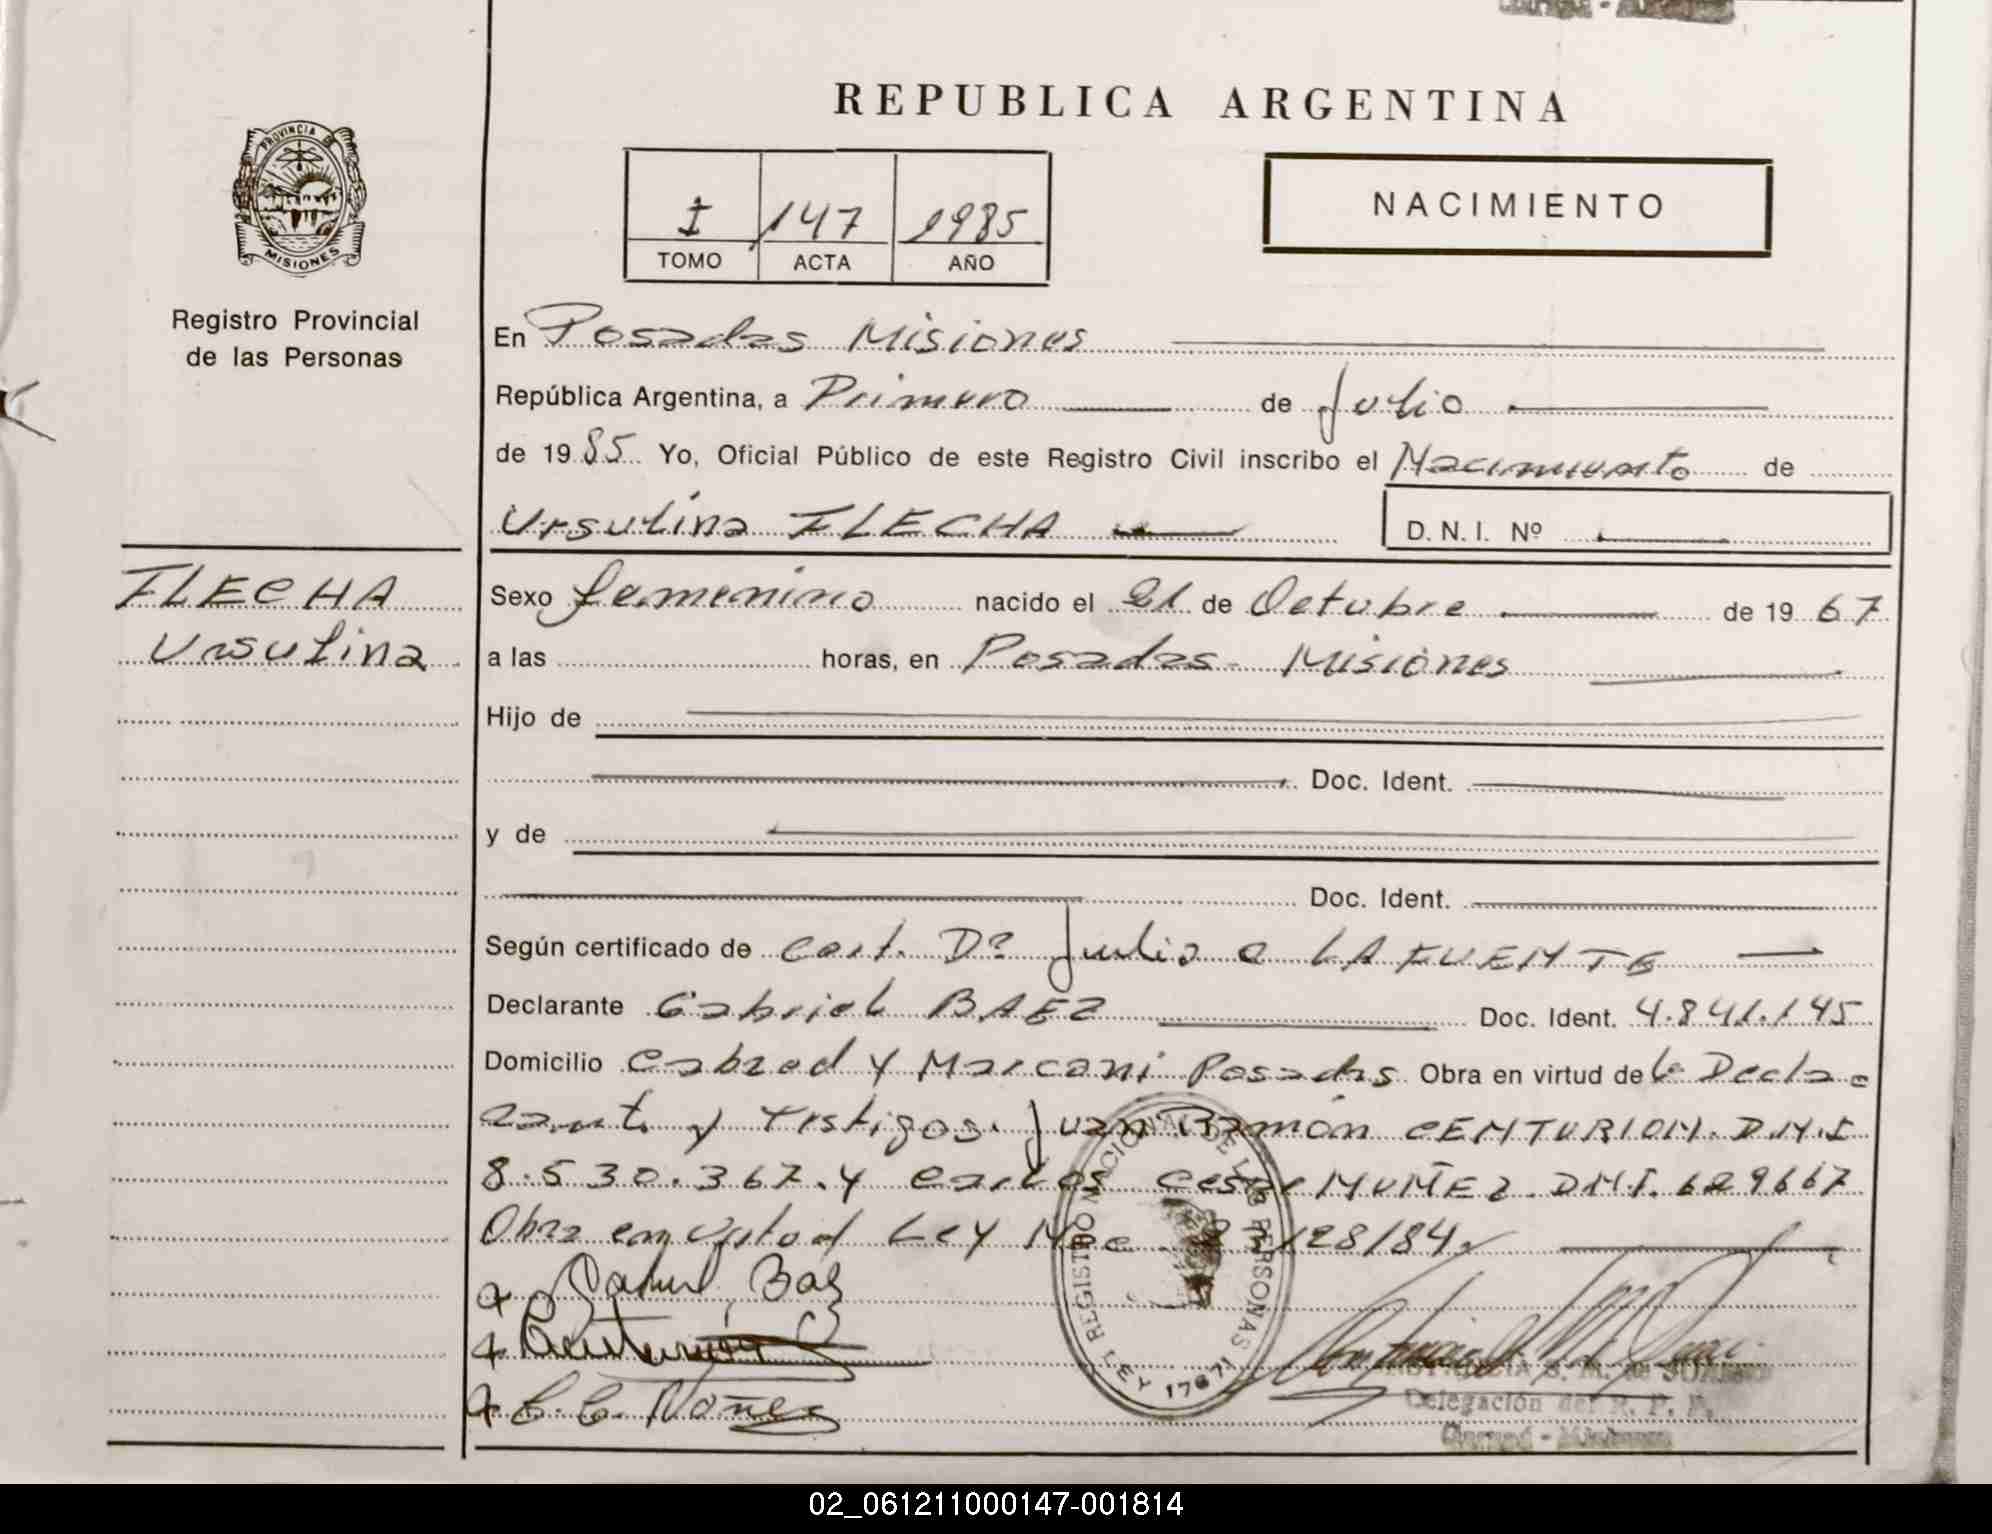 REPUBLICA ARGENTINA
PROVINCIA DE
MISIONES
Registro Provincial
de las Personas
I 147 1985
TOMO ACTA AÑO
NACIMIENTO
En Posadas Misiones
República Argentina, a Primero de Julio
de 1985 Yo, Oficial Público de este Registro Civil inscribo el Nacimiento de
Ursulina FLECHA D. N. I. Nº
FLECHA
Ursulina
Sexo femenino nacido el 21 de Octubre de 1967
a las horas, en Posadas Misiones
Hijo de
Doc. Ident.
y de
Doc. Ident.
Según certificado de cert. Dr Julio C LAFUENTE
Declarante Gabriel BAEZ Doc. Ident. 4.841.145
Domicilio Cabred y Marconi Posadas Obra en virtud de la Decla
rante y Testigos. Juan Ramón CENTURION. D.N.I
8.530.367. y Carlos Cesar MUÑEZ. DNI. 629667
Obra en virtud Ley Nac. 23128/84
Baez
C. C. Nuñez
REGISTRO NACIONAL DE LAS PERSONAS
LEY 17671
S. M. de
Delegación del R. P. P.
02_061211000147-001814